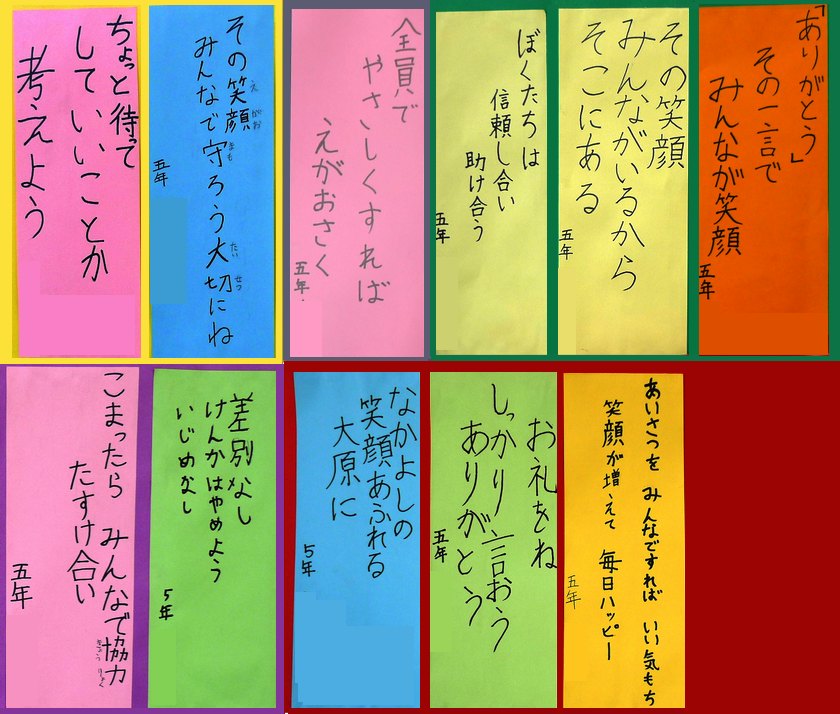 ちょっと待って
していいことか
考えよう
その笑顔
みんなで守ろう大切にね
えがお
まも
たいせつ
五年
全員で
やさしくすれば
えがおさく
五年
ぼくたちは
信頼し合い
助け合う
五年
その笑顔
みんながいるから
そこにある
五年
「ありがとう」
その一言で
みんなが笑顔
五年
こまったら みんなで協力
きょうりょく
たすけ合い
五年
差別なし
けんかはやめよう
いじめなし
5年
なかよしの
笑顔あふれる
大原に
5年
お礼をね
しっかり言おう
ありがとう
五年
あいさつを みんなですれば いい気もち
笑顔が増えて 毎日ハッピー
五年